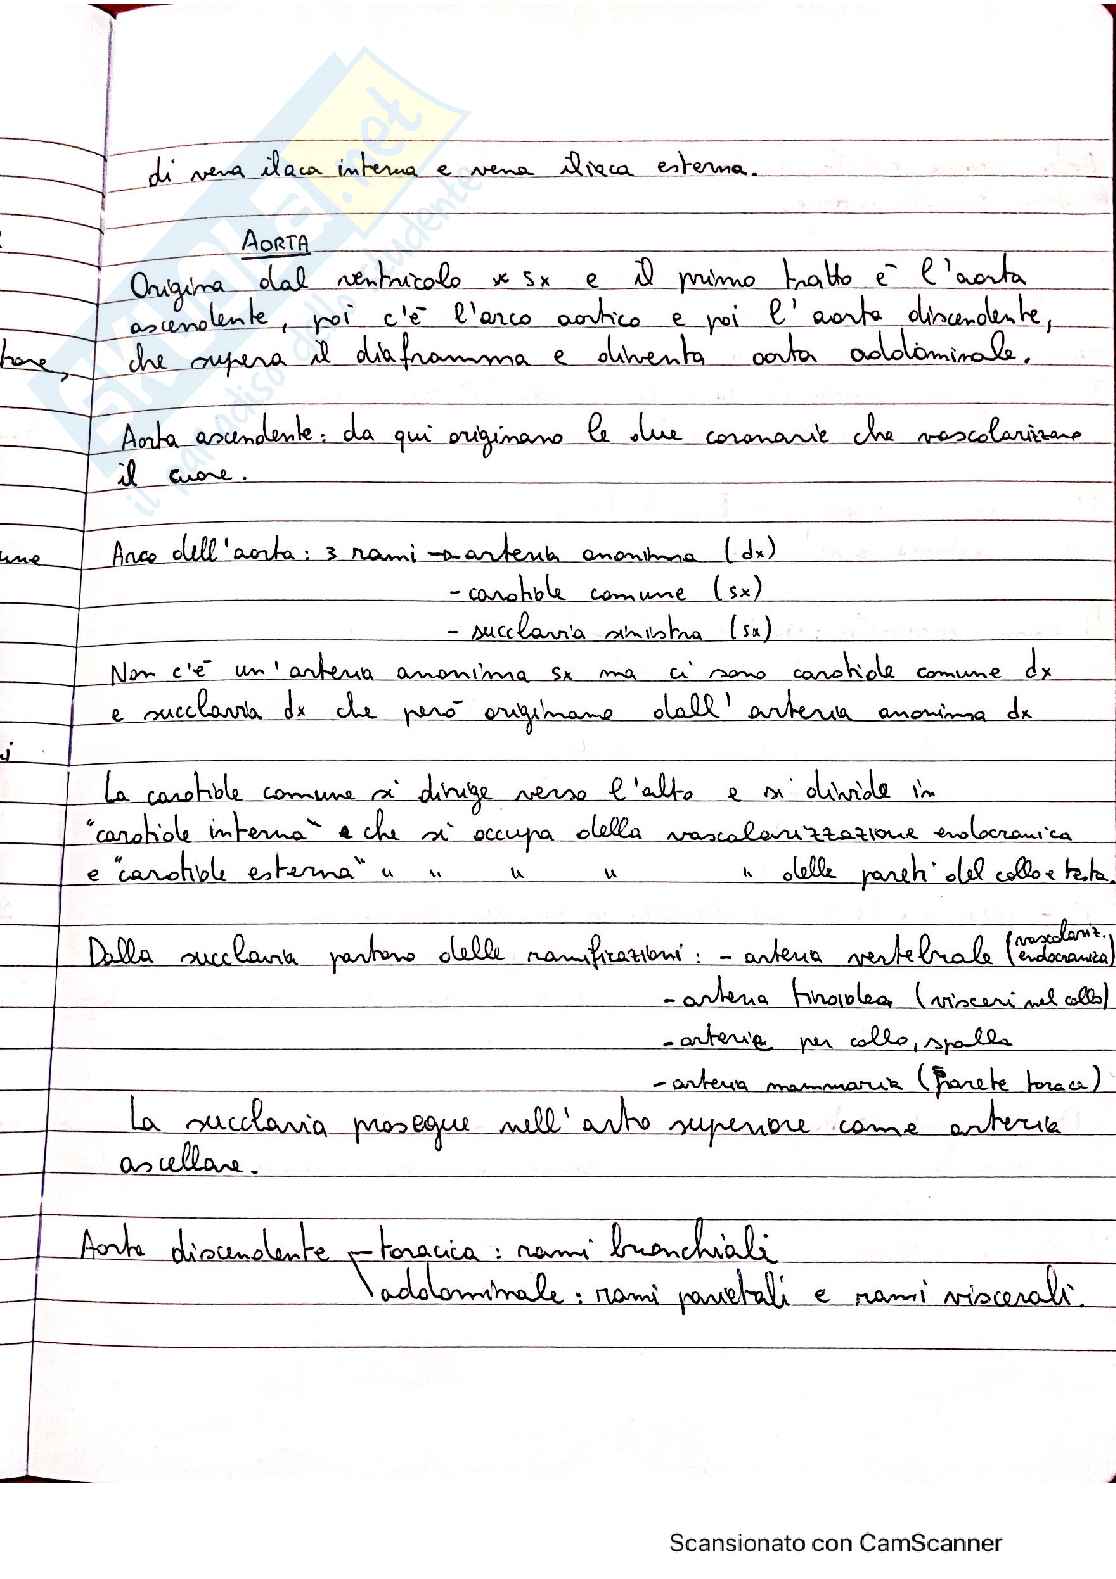 di vena ilaca interna e vena iliaca esterna.
AORTA
Origina dal ventricolo sx e il primo tratto è l'aorta
ascendente, poi c'è l'arco aortico e poi l'aorta discendente,
che supera il diaframma e diventa aorta addominale.
Aorta ascendente: da qui originano le due coronarie che vascolarizzano
il cuore.
Arco dell'aorta: 3 rami → arteria anonima (dx)
- carotide comune (sx)
- succlavia sinistra (sx)
Non c'è un'arteria anonima sx ma ci sono carotide comune dx
e succlavia dx che però originano dall'arteria anonima dx
La carotide comune si dirige verso l'alto e si divide in
"carotide interna" che si occupa della vascolarizzazione endocranica
e "carotide esterna" " " " " " delle pareti del collo e testa.
Dalla succlavia partono delle ramificazioni: - arteria vertebrale (vascolariz. endocranica)
- arteria tiroidea (visceri nel collo)
- arterie per collo, spalla
- arteria mammaria (parete torace)
La succlavia prosegue nell'arto superiore come arteria
ascellare.
Aorta discendente - toracica: rami bronchiali
\ addominale: rami parietali e rami viscerali.
SKUOLA.net
il paradiso dello studente
Scansionato con CamScanner